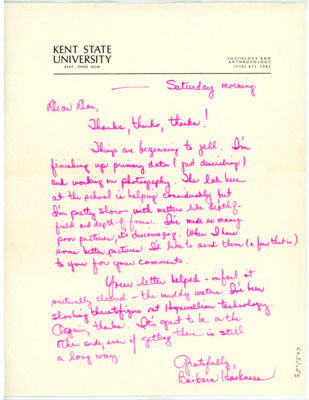 KENT STATE
UNIVERSITY
KENT, OHIO 44242
SOCIOLOGY AND
ANTHROPOLOGY
(216) 672-2562
Saturday morning
Dear Don,
Thanks, thanks, thanks!
Things are beginning to jell. I'm
finishing up primary data (just describing)
and working on photography. The lab here
at the school is helping considerably but
I'm pretty slow with matters like depth of
field and depth of focus. I've made so many
poor pictures, its discouraging. When I have
some better pictures I'd like to send them (a few that is)
to you for your comments.
Your letter helped - in fact it
virtually cleared - the muddy waters I've been
sloshing through re Hopewellian technology.
Again, thanks. It's great to be on the
other side, even if getting there is still
a long way
Gratefully,
Barbara Harkness